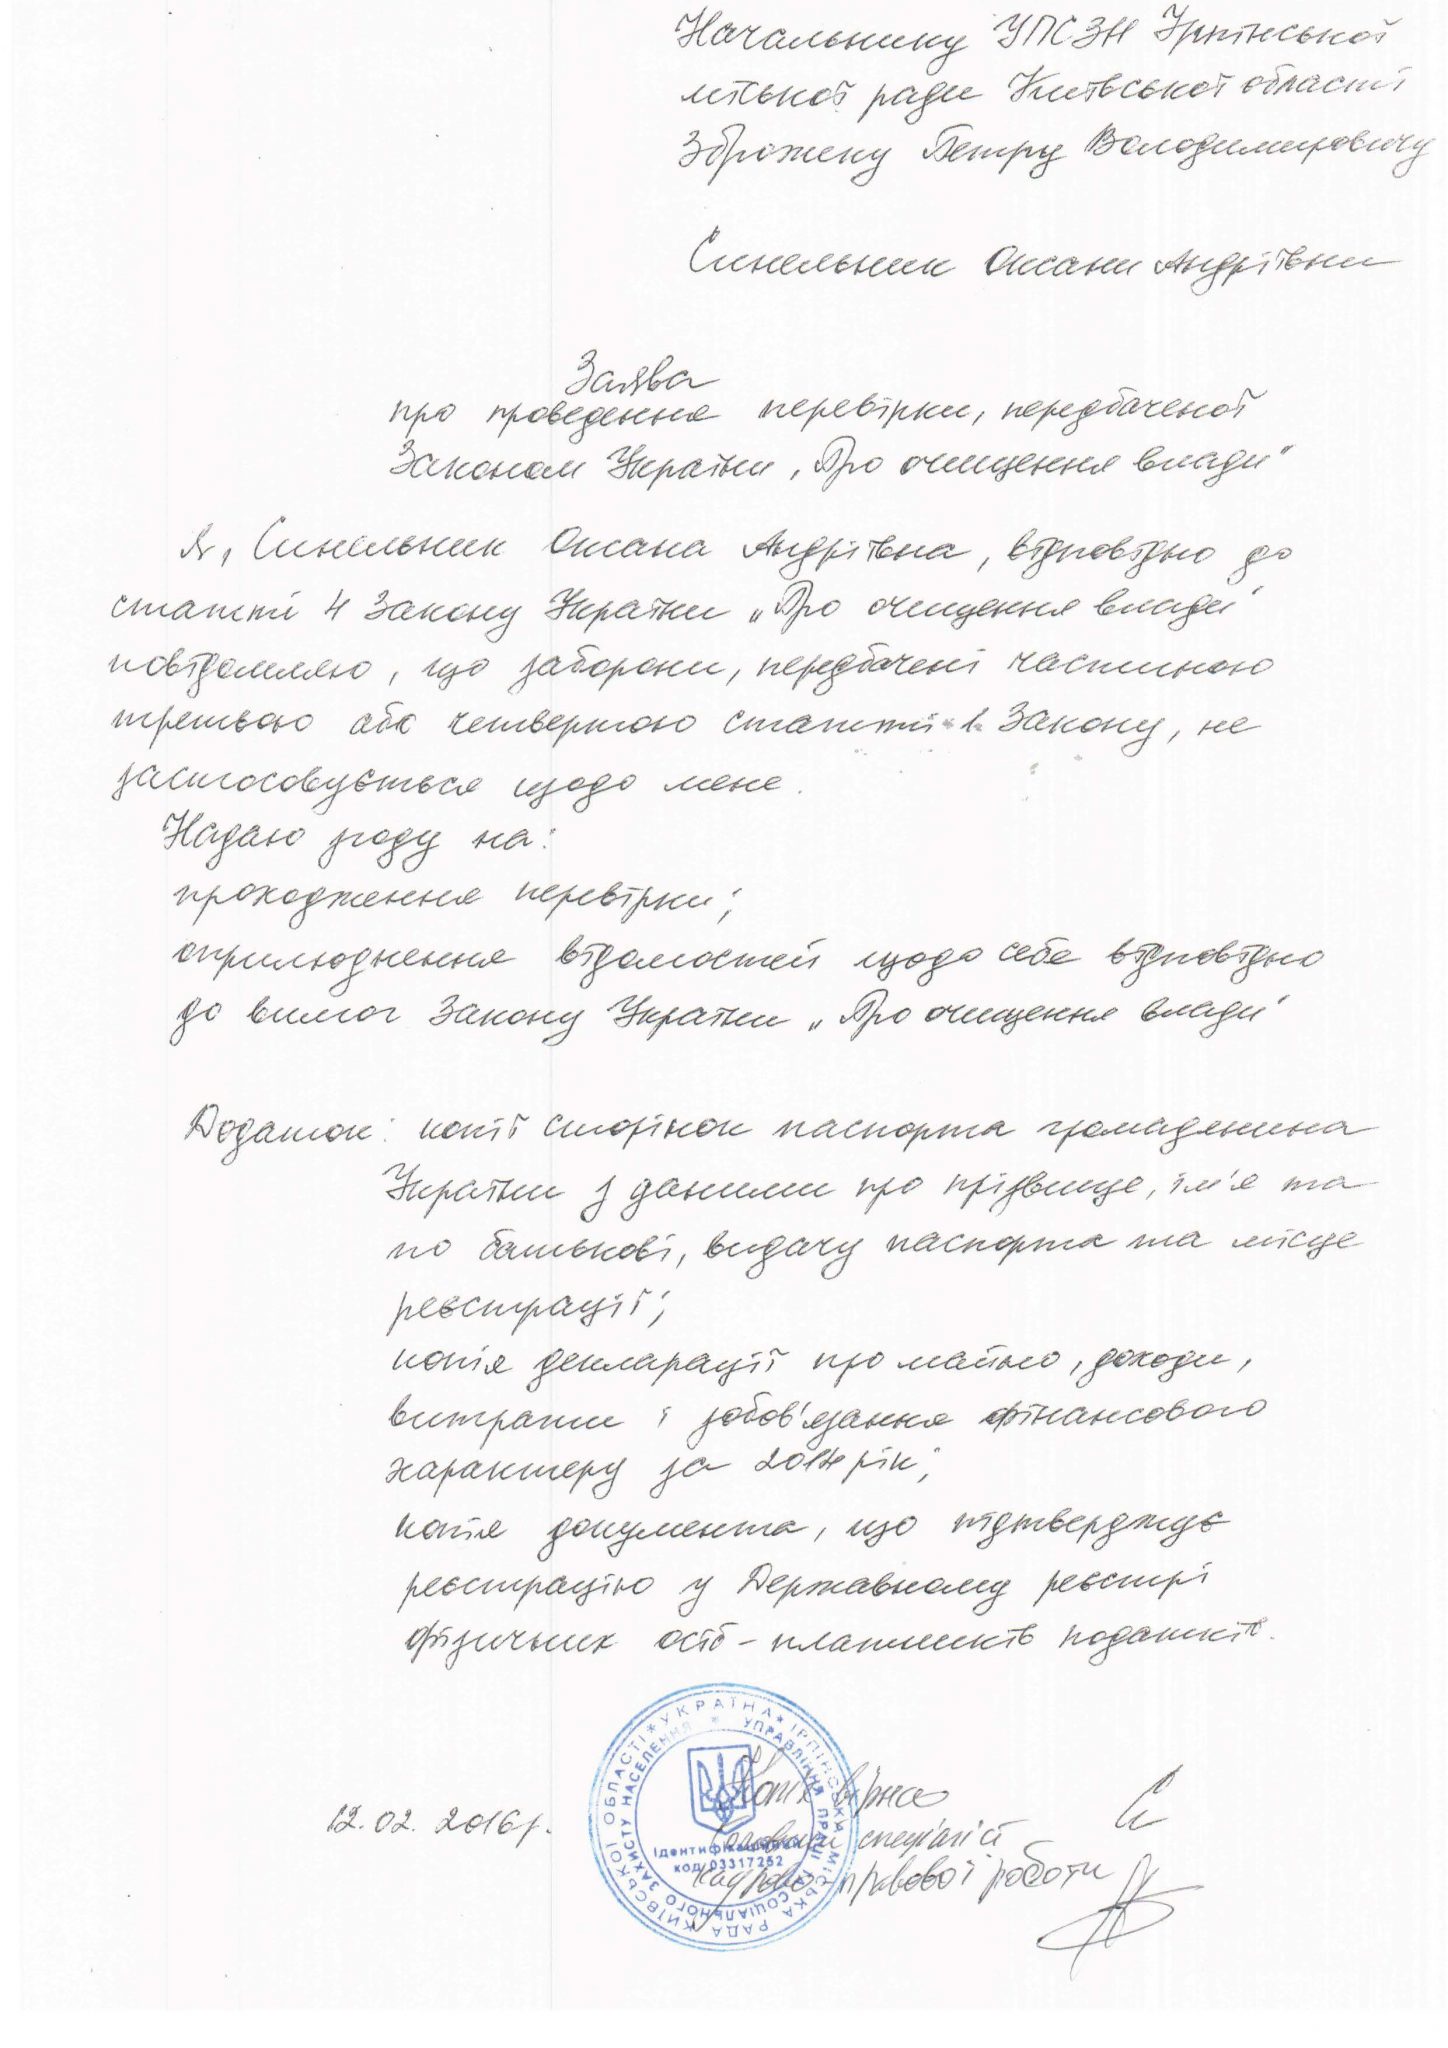 Начальнику УПСЗН Ірпінської
міської ради Київської області
Зброжеку Петру Володимировичу
Синельник Оксани Андріївни
Заява
про проведення перевірки, передбаченої
Законом України „Про очищення влади"
Я, Синельник Оксана Андріївна, відповідно до
статті 4 Закону України „Про очищення влади"
повідомляю, що заборони, передбачені частиною
третьою або четвертою статті 1 Закону, не
застосовується щодо мене.
Надаю згоду на:
проходження перевірки;
оприлюднення відомостей щодо себе відповідно
до вимог Закону України „Про очищення влади"
Додаток: копії сторінок паспорта громадянина
України з даними про прізвище, ім'я та
по батькові, видачу паспорта та місце
реєстрації;
копія декларації про майно, доходи,
витрати і зобов'язання фінансового
характеру за 2014 рік;
копія документа, що підтверджує
реєстрацію у Державному реєстрі
фізичних осіб – платників податків.
12.02.2016р.
Копія вірна
Головний спеціаліст
кадрово-правової роботи
* УКРАЇНА * ІРПІНСЬКА МІСЬКА РАДА КИЇВСЬКОЇ ОБЛАСТІ
* УПРАВЛІННЯ ПРАЦІ ТА СОЦІАЛЬНОГО ЗАХИСТУ НАСЕЛЕННЯ
Ідентифікаційний
код 03317252